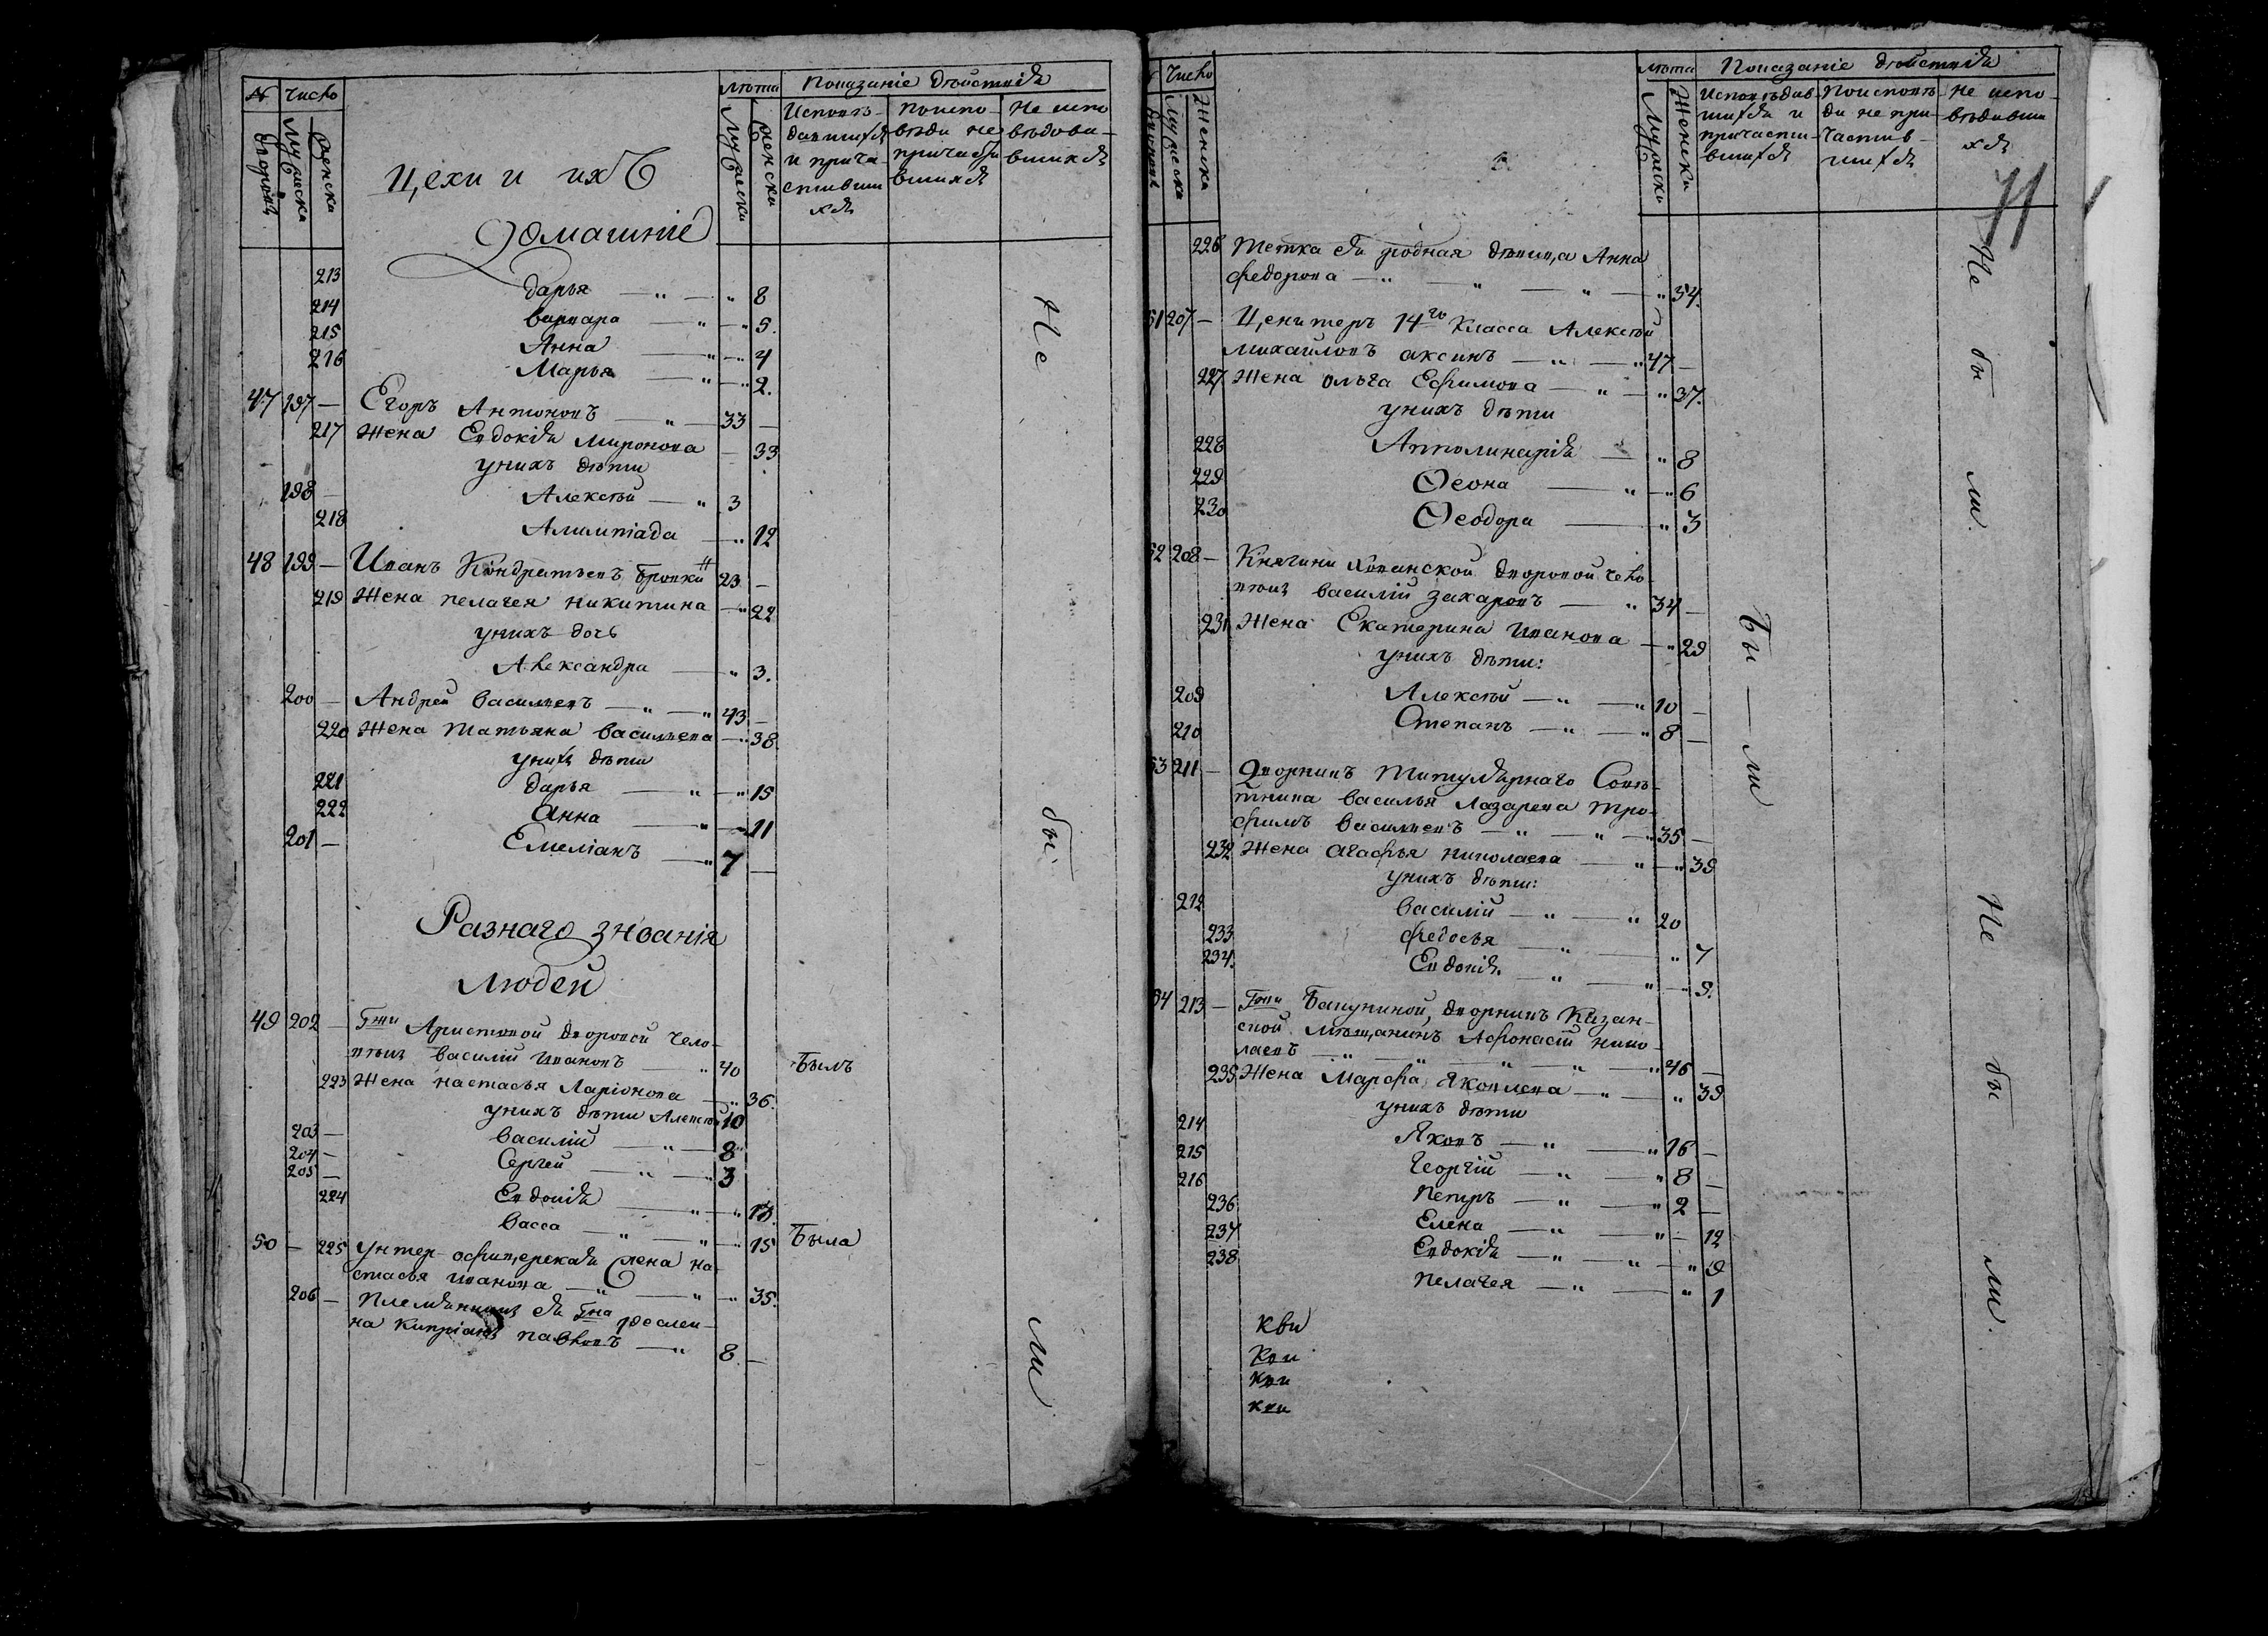 № Число Лѣта Показаніе дѣйствія
дворовъ Мужеска Женска Мужеска Женска
Исповѣдавшихся и причастившихся
По исповѣди не причастившихся
Не исповѣдовавшихся
Цехи и ихъ
домашніе
213 Дарья — " — " 8
214 Варвара — " — " 5.
215 Анна — " — " 4
216 Марья — " — " 2.
47 197 — Егоръ Антоновъ — " 33 —
217 Жена Евдокія Миронова — 33
у нихъ дѣти
198 — Алексѣй — " 3
218 Алимпіада — " 12
48 199 — Иванъ Кондратьевъ 23 —
219 Жена Пелагея Никитина — " 22
у нихъ дочь
Александра — " 3.
200 — Андрей Васильевъ — " — " 43 —
220 Жена Татьяна Васильева — " 38
у нихъ дѣти
221 Дарья — " — " 15
222 Анна — " — " 11
201 — Емеліанъ — " 7 —
Разнаго званія
людей
49 202 — Гжи Аристовой дворовой чело-
вѣкъ Василій Ивановъ — " 40 Былъ
223 Жена Настасья Ларіонова — " 36.
у нихъ дѣти Алексѣй 10
203 — Василій — " — 8
204 — Сергей — " — " 3
205 —
224 Евдокія — " — " 13.
Васса — " — " — " 15 Была
50 — 225 Унтер-офицерская жена На-
стасья Иванова — " — " — " 35.
206 — Племянникъ ея
на Кипріянъ Павловъ — " 8 —
Не бы ли
Число Лѣта Показаніе дѣйствія
дворовъ Мужеска Женска Мужеска Женска
Исповѣдавшихся и причастившихся
По исповѣди не причастившихся
Не исповѣдавшихся
226 Тетка ея родная дѣвица Анна
Федорова — " — " — " — " 54.
51 207 — Ценитеръ 14го класса Алексѣй
Михайловъ Аксинъ — " — " 47 —
227 Жена Ольга Ефимова — " — " 37.
у нихъ дѣти
228 Апполинарія — " 8
229 Ѳеона — " — " 6
230 Ѳеодора — " 3
52 208 — Княгини Хованской дворовой чело-
вѣкъ Василій Захаровъ — " 34 —
231 Жена Екатерина Иванова — " 29
у нихъ дѣти:
209 Алексѣй — " — " 10 —
210 Степанъ — " — " 8 —
53 211 — Дворникъ Титулярнаго Совѣ-
тника Василья Лазарева Тро-
фимъ Васильевъ — " — " — " 35 —
232 Жена Агафья Николаева — " — " 39
у нихъ дѣти:
212 Василій — " — " 20
233 Федосья — " — " 7
234. Евдокія — " — " — " 5.
54 213 — Гжи Бакуниной, дворникъ Казан-
ской мѣщанинъ Афонасій Нико-
лаевъ — " — " — " — " 46 —
235 Жена Марфа Яковлева — " — " 39
у нихъ дѣти
214 Яковъ — " — " 16 —
215 Георгій — " — " 8 —
216 Петръ — " — " 2 —
236 Елена — " — " — 12
237 Евдокія — " — " — " 9
238 Пелагея — " — " 1
Не бы ли.
Бы — ли
Не бы ли.
кви
кви
кви
кви